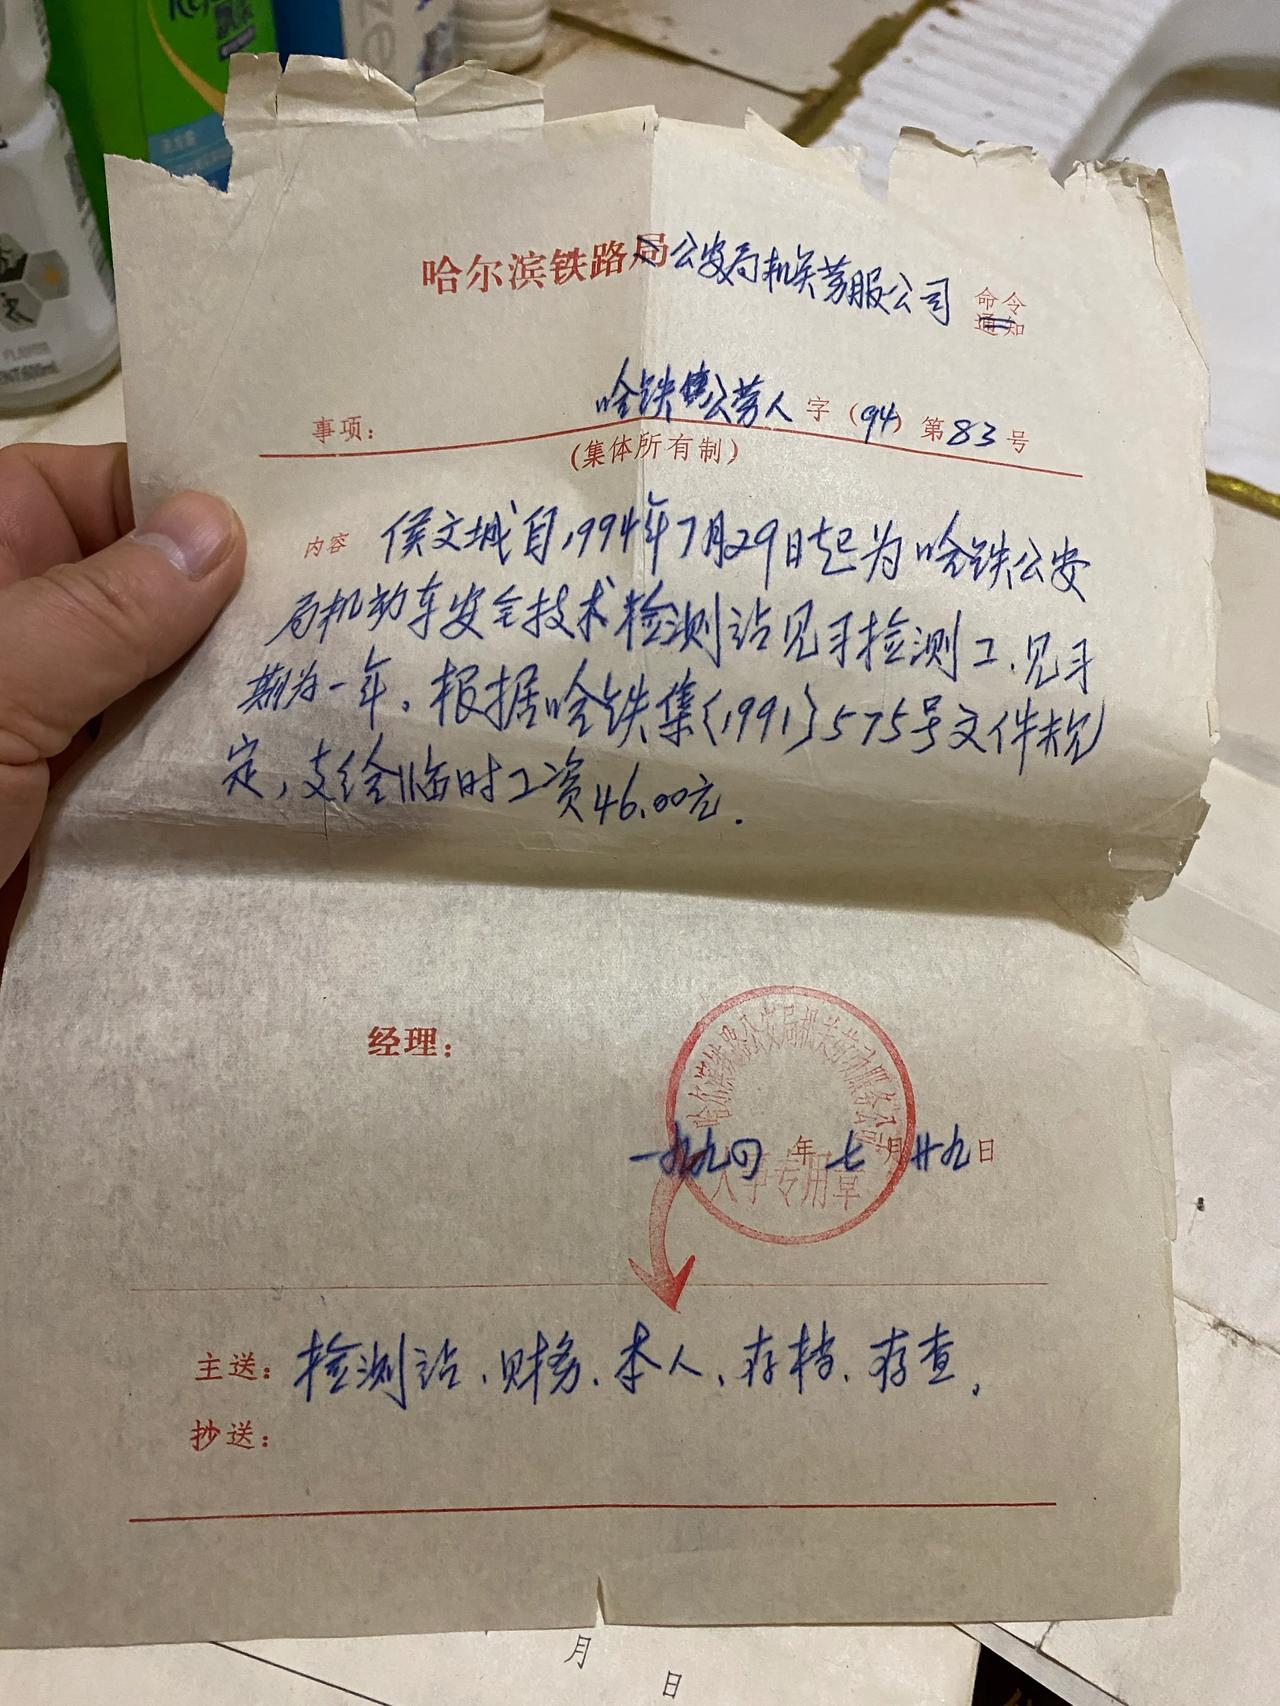 哈尔滨铁路局公安局机关劳服公司 命令
通知
哈铁公劳人字(94)第83号
事项:
(集体所有制)
内容 侯文城自1994年7月29日起为哈铁公安
局机动车安全技术检测站见习检测工.见习
期为一年.根据哈铁集(1991)575号文件规
定,支给临时工资46.00元.
经理:
哈尔滨铁路公安局机关劳动服务公司
一九九四年七月廿九日
人事专用章
主送:检测站、财务、本人、存档、存查.
抄送:
月
日